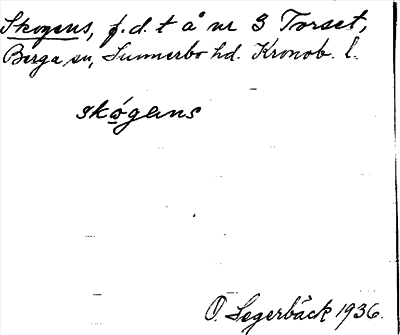 Skogens, f.d. t å nr 3 Torset,
Berga sn, Sunnerbo hd. Kronob. l.
skógans
O. Segerbäck 1936.